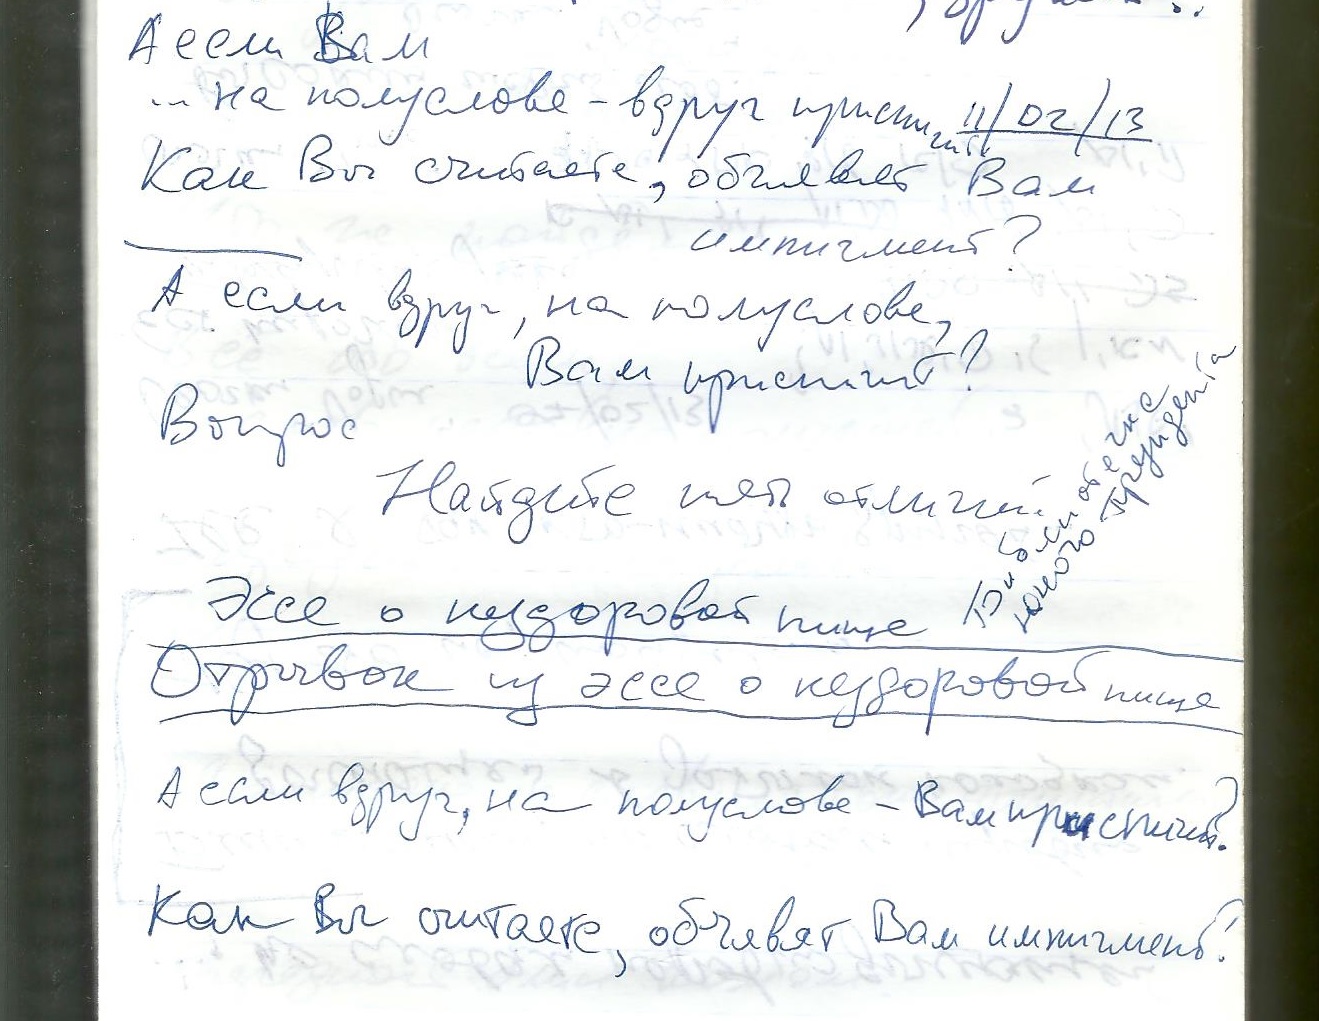 А если Вам
... на полуслове – вдруг приспичить 11/02/13
Как Вы считаете, объявят Вам
импичмент?
А если вдруг, на полуслове,
Вам приспичит?
Вопрос
Найдите пять отличий.
Эссе о нездоровой пище
Библиотечке
юного президента
Отрывок из эссе о нездоровой пище
А если вдруг, на полуслове – Вам приспичит?
Как Вы считаете, объявят Вам импичмент?